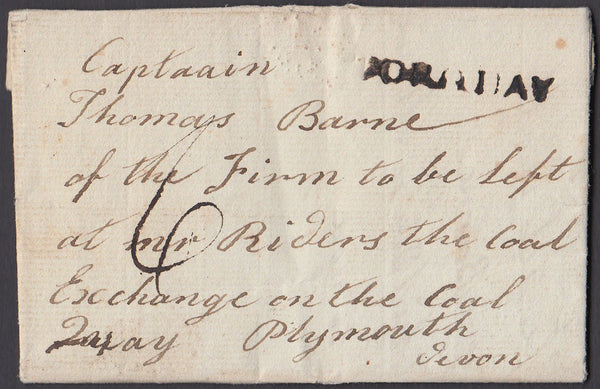 Captaain
Thomas Barne
of the Firm to be left
at mr Riders the Coal
Exchange on the Coal
Quay Plymouth
devon
6